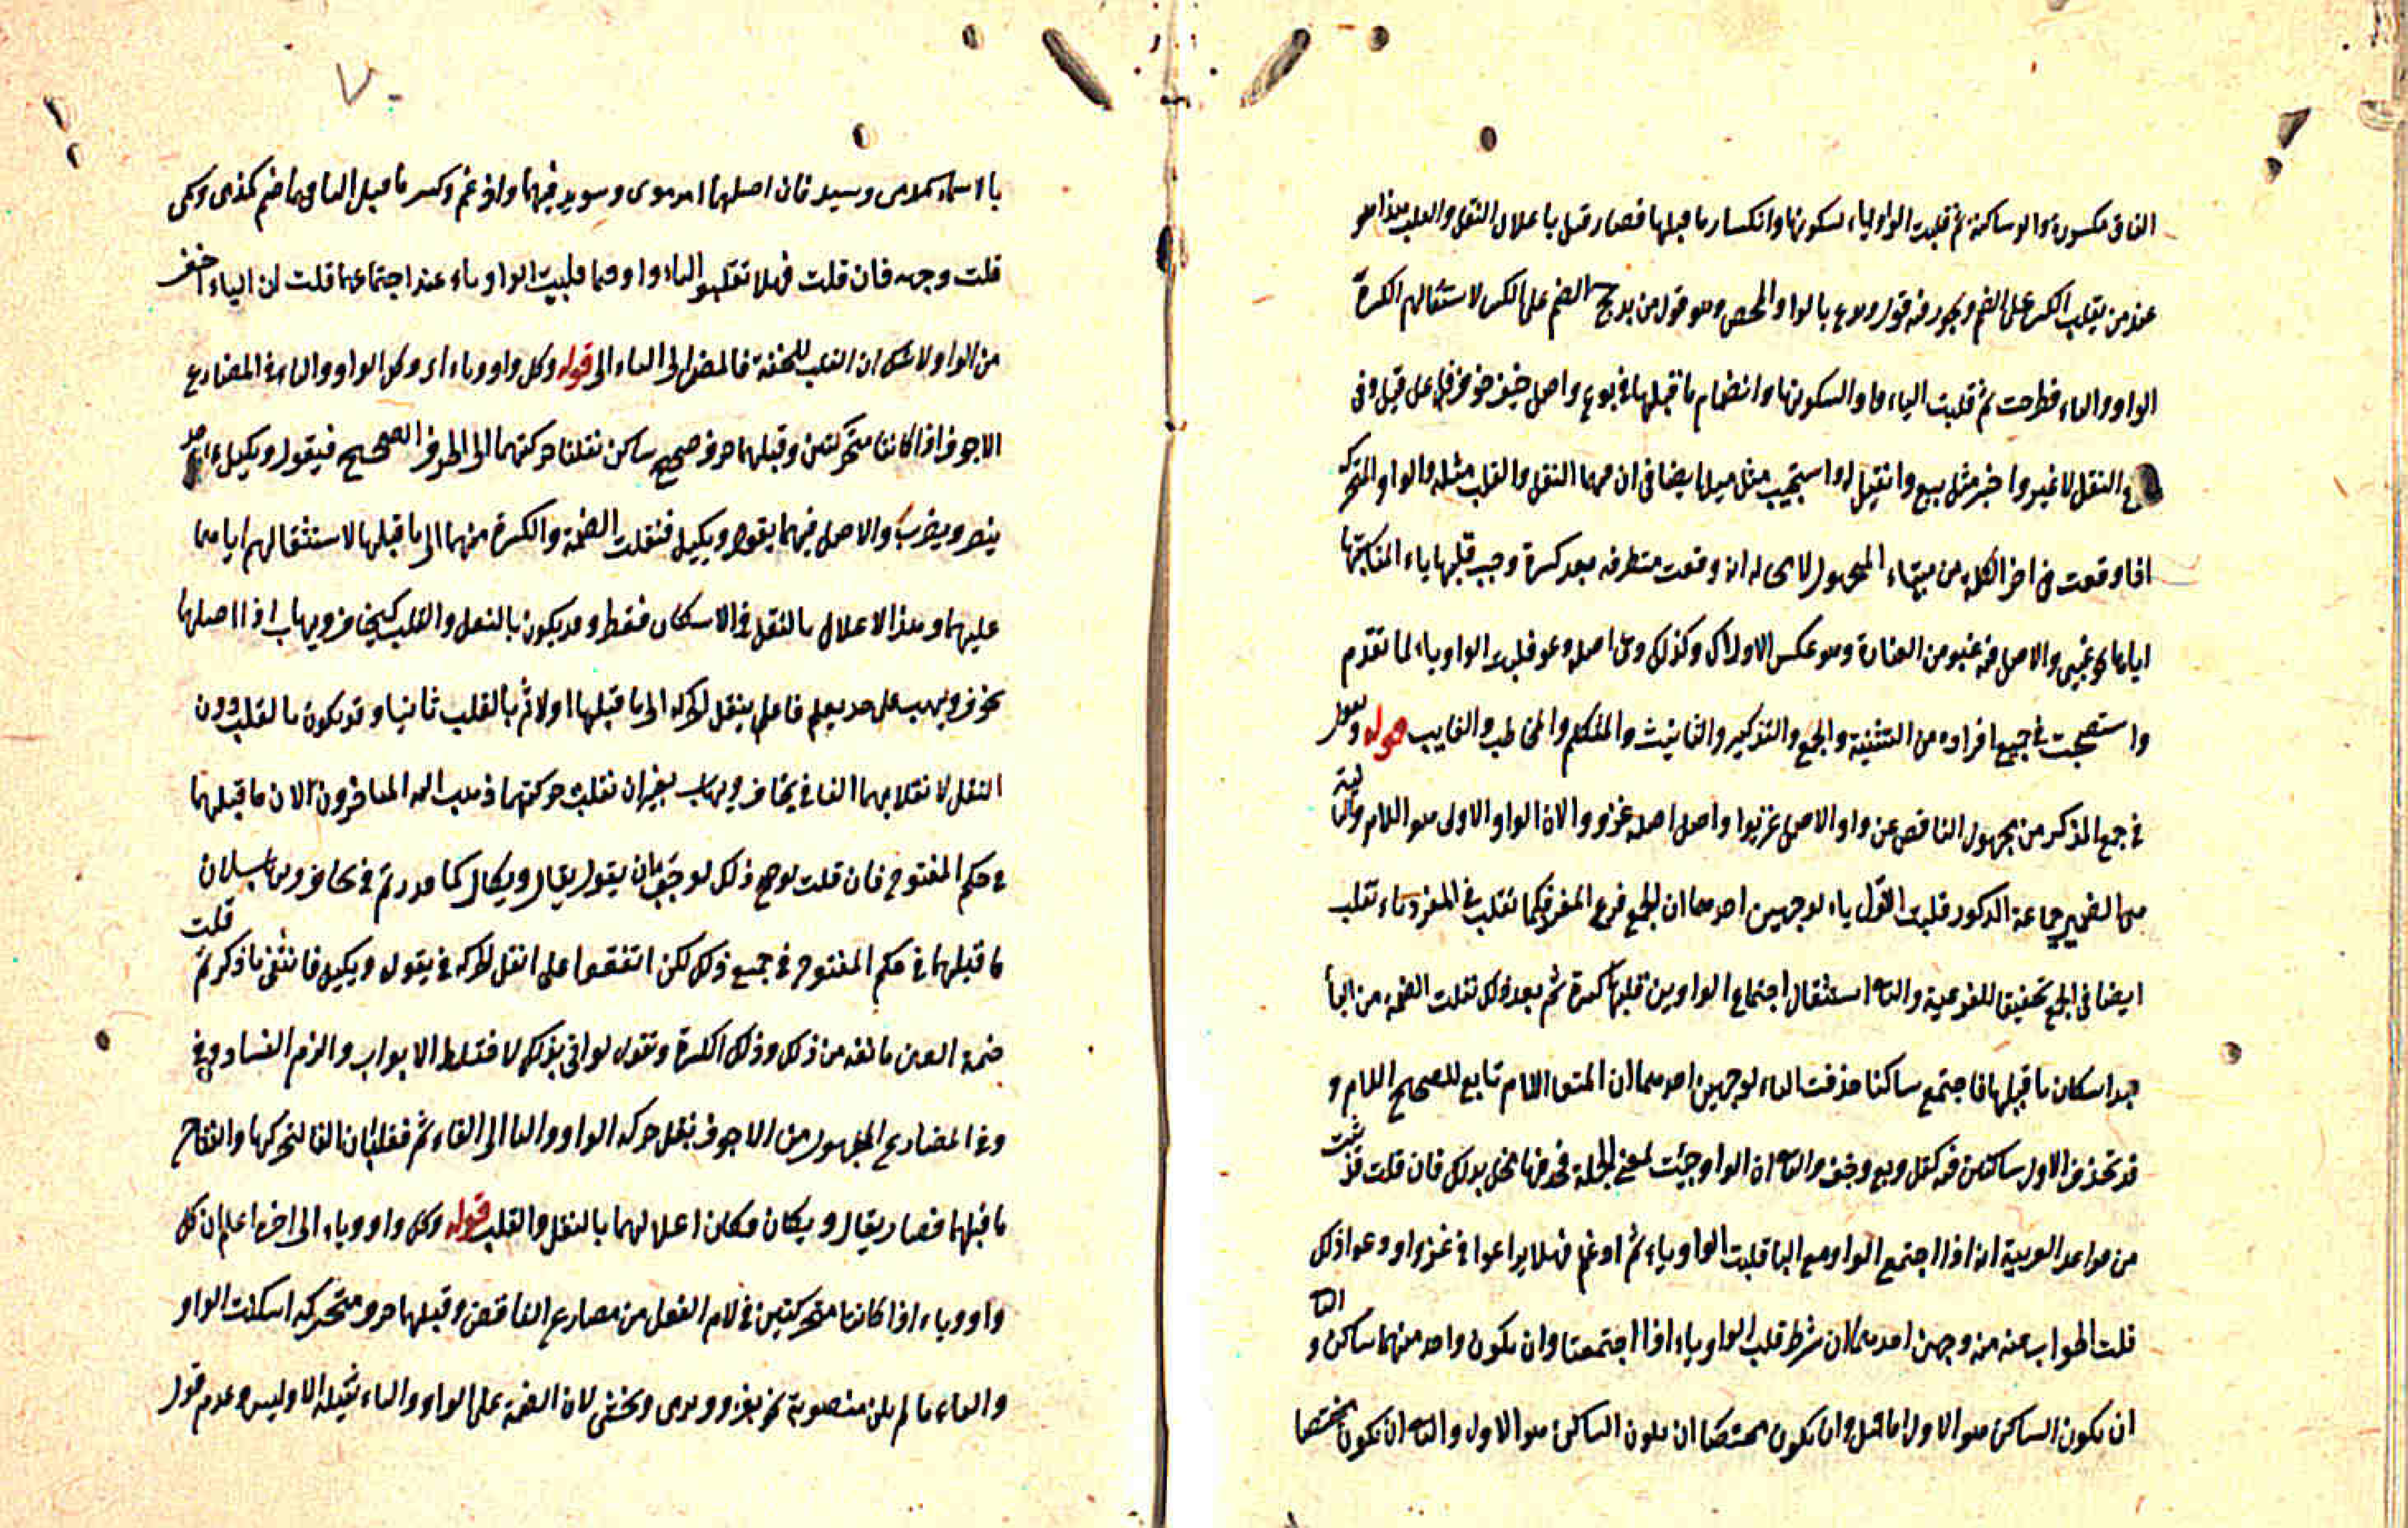 القاف مكسورة والو ساكنة ثم قلبت الواو ياء لسكونها وانكسار ما قبلها فصار قيل باعلال النقل والقلب هذا هو
عند من يقلب الكسر على الضم ويجوز فيه قول وبوع بالواو المحض وهو قول من يرجح الضم على الكسر لاستثقالهم الكسرة
الواو والياء فطرحت ثم قلبت الياء واو السكونها وانضمام ما قبلها في بوع واصل خيف خوف فاعل قيل وفي
النقل لا غير واختير مثل بيع وانقيل او استجيب مثل ايضا في ان فيهما النقل والقلب مثله والواو المتحركة
اذا وقعت في اخر الكلمة من بناء المجهول لانه وقعت متطرفة بعد كسرة وجب قلبها ياء
اياها والاصل فيه غبو من الغباوة وهو عكس الاول وكذلك اصله دعو قلبت الواو ياء لما تقدم
واستصحبت في جميع افراده من التثنية والجمع والتذكير والتانيث والمتكلم والمخاطب والغايب قوله وتقول
في جمع المذكر من مجهول الناقص عن واو الاصل غزيوا واصل اصله غزووا لان الواو الاولى هو اللام والثانية
هي الضمير جماعة الذكور قلبت الاول ياء لوجهين احدهما ان الجمع فرع المفرد فكما تقلب في المفرد ياء تقلب
ايضا في الجمع تحقيقا للفرعية والثاني استثقال اجتماع الواوين قبلها كسرة ثم بعد ذلك نقلت الضمة من الياء
بعد اسكان ما قبلها فاجتمع ساكنا حذفت الياء لوجهين احدهما ان المعتل اللام تابع للصحيح اللام و
قد تحذف الاول ساكنين فيه كقل وبع وخف والثاني ان الواو جيئت لمعنى الجملة فحذفها يخل بذلك فان قلت قد ثبت
من قواعد العربية ان اذا اجتمع الواو مع اليا قلبت الواو ياء ثم ادغم فهلا يراعوا في غزواو ودعوا ذلك
قلت الجواب عنه من وجهين احدهما ان شرط قلب الواو ياء اذا اجتمعتا وان يكون واحد منهما ساكن والثاني
ان يكون الساكن هو الاول وان يكون الساكن هو الاول والثاني ان يكون مختصا
بالاسماء كمرمى وسيد فان اصلهما مرموى وسويد فيهما وادغم وكسر ما قبل اليا
قلت وجهه فان قلت فهلا تقلبوا الياء واوا وكما قلبت الواو ياء عند اجتماعهما قلت لان الياء اخف
من الواو ولا شك ان القلب للخفة فالمضى الى الياء الى قوله وكل واو وياء اى وكل الواو والياء في المضارع
الاجوف اذا كانتا متحركتين وقبلهما حرف صحيح ساكن نقلنا حركتهما الى الحرف الصحيح فيقول ويكيل
ينصر ويضرب والاصل فيهما يقول ويكيل فنقلت الضمة والكسرة منهما الى ما قبلها لاستثقالهم اياهما
عليهما وهذا الاعلال بالنقل والاسكان فقط وقد يكون بالنقل والقلب كيخاف ويهاب اذ اصلها
يخوف ويهيب على حد يعلم فاعل بنقل الحركة الى ما قبلها اولا ثم بالقلب ثانيا وقد يكون بالقلب دون
النقل لانقلابهما الفا في يخاف ويهاب بغير ان نقلت حركتهما ذهب اليه المتاخرون لان ما قبلهما
في حكم المفتوح فان قلت لو صح ذلك لوجب بان يقول يقال ويكال كما قدرتم في يخاف ويهاب لان
ما قبلهما في حكم المفتوح في جميع ذلك لكن اتفقوا على نقل الحركة في يقول ويكيل فانتفى ما ذكرتم قلت
ضمة العين مانعة من ذلك وذلك الكسرة ونقول لو اتى بذلك لاختلط الابواب والزم الفساد وفي
وفي المضارع المجهول من الاجوف بنقل حركة الواو واليا الى الفاء ثم فقلبتان الفا لتحركها وانفتاح
ما قبلها فصار يقال ويكال فكان اعلالهما بالنقل والقلب قوله وكل واو وياء الى اخره اعلم ان كل
واو وياء اذا كانتا متحركتين في لام الفعل من مضارع الناقص وقبلهما حرف متحركة اسكنت الواو
والياء ما لم يكن منصوبة نحو يغزو ويرمى ويخشى لان الضمة على الواو والياء ثقيلة